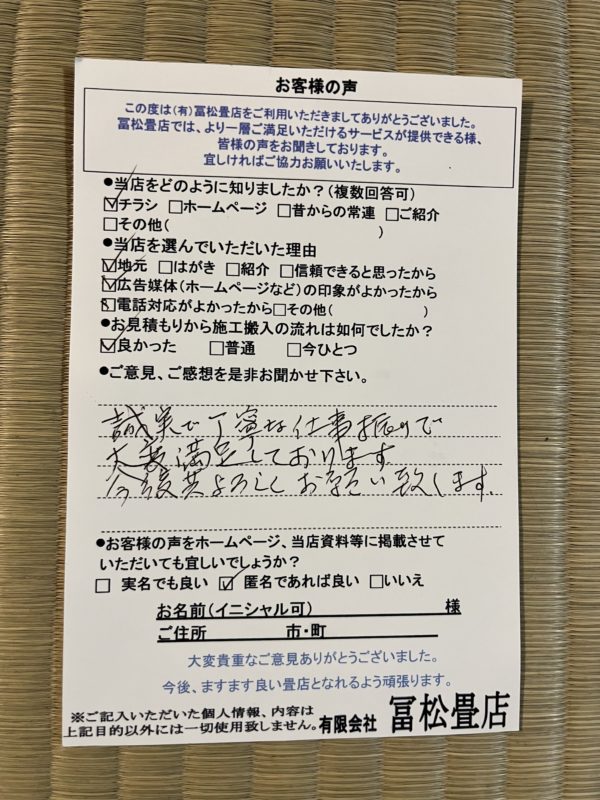 お客様の声
この度は(有)冨松畳店をご利用いただきましてありがとうございました。
冨松畳店では、より一層ご満足いただけるサービスが提供できる様、
皆様の声をお聞きしております。
宜しければご協力お願いいたします。
●当店をどのように知りましたか？(複数回答可)
☑チラシ □ホームページ □昔からの常連 □ご紹介
□その他( )
●当店を選んでいただいた理由
☑地元 □はがき □紹介 □信頼できると思ったから
☑広告媒体(ホームページなど)の印象がよかったから
☑電話対応がよかったから□その他( )
●お見積もりから施工搬入の流れは如何でしたか？
☑良かった □普通 □今ひとつ
●ご意見、ご感想を是非お聞かせ下さい。
誠実で丁寧な仕事振りで
大変満足しております
今後共よろしくお願い致します。
●お客様の声をホームページ、当店資料等に掲載させて
いただいても宜しいでしょうか？
□ 実名でも良い ☑ 匿名であれば良い □いいえ
お名前(イニシャル可) 様
ご住所 市・町
大変貴重なご意見ありがとうございました。
今後、ますます良い畳店となれるよう頑張ります。
※ご記入いただいた個人情報、内容は
上記目的以外には一切使用致しません。有限会社 冨松畳店